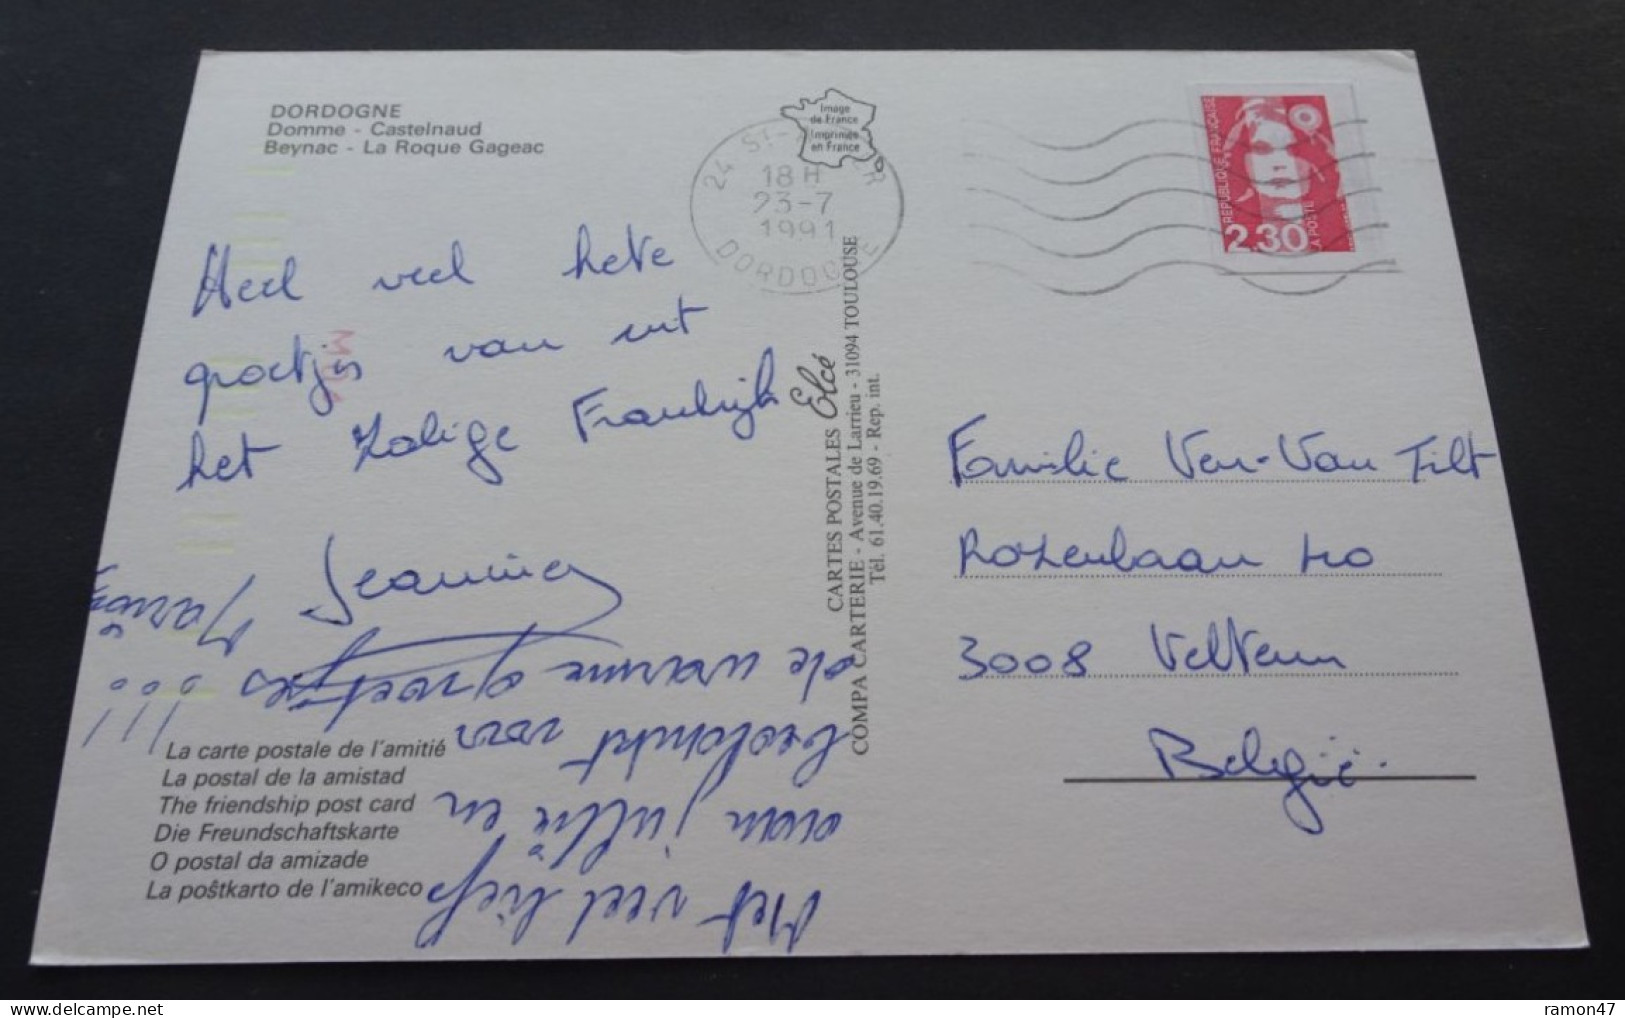 DORDOGNE
Domme - Castelnaud
Beynac - La Roque Gageac
Image
de France
Imprimée
en France
24 ST-
18 H
23-7
1991
DORDOGNE
REPUBLIQUE FRANÇAISE
LA POSTE
2,30
Heel veel hete
groetjes van uit
het zalige Frankrijk
Jeannine
Met veel liefs
aan jullie en
bedankt voor
de warme groetjes
!!!
CARTES POSTALES Elcé
COMPA CARTERIE - Avenue de Larrieu - 31094 TOULOUSE
Tél. 61.40.19.69 - Rep. int.
Familie Ven-Van Tilt
Rozenlaan
3008 Veltem
België.
La carte postale de l'amitié
La postal de la amistad
The friendship post card
Die Freundschaftskarte
O postal da amizade
La poŝtkarto de l'amikeco
ramon47